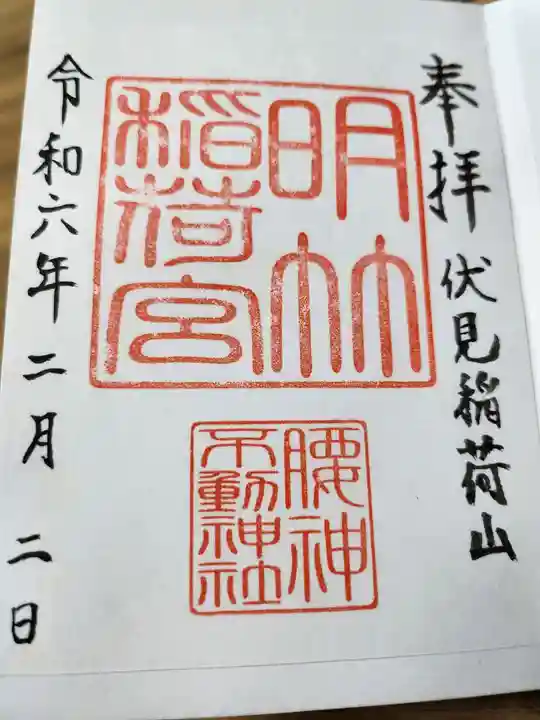 奉拝
伏見稲荷山
明竹
稲荷宮
腰神
不動神社
令和六年二月二日